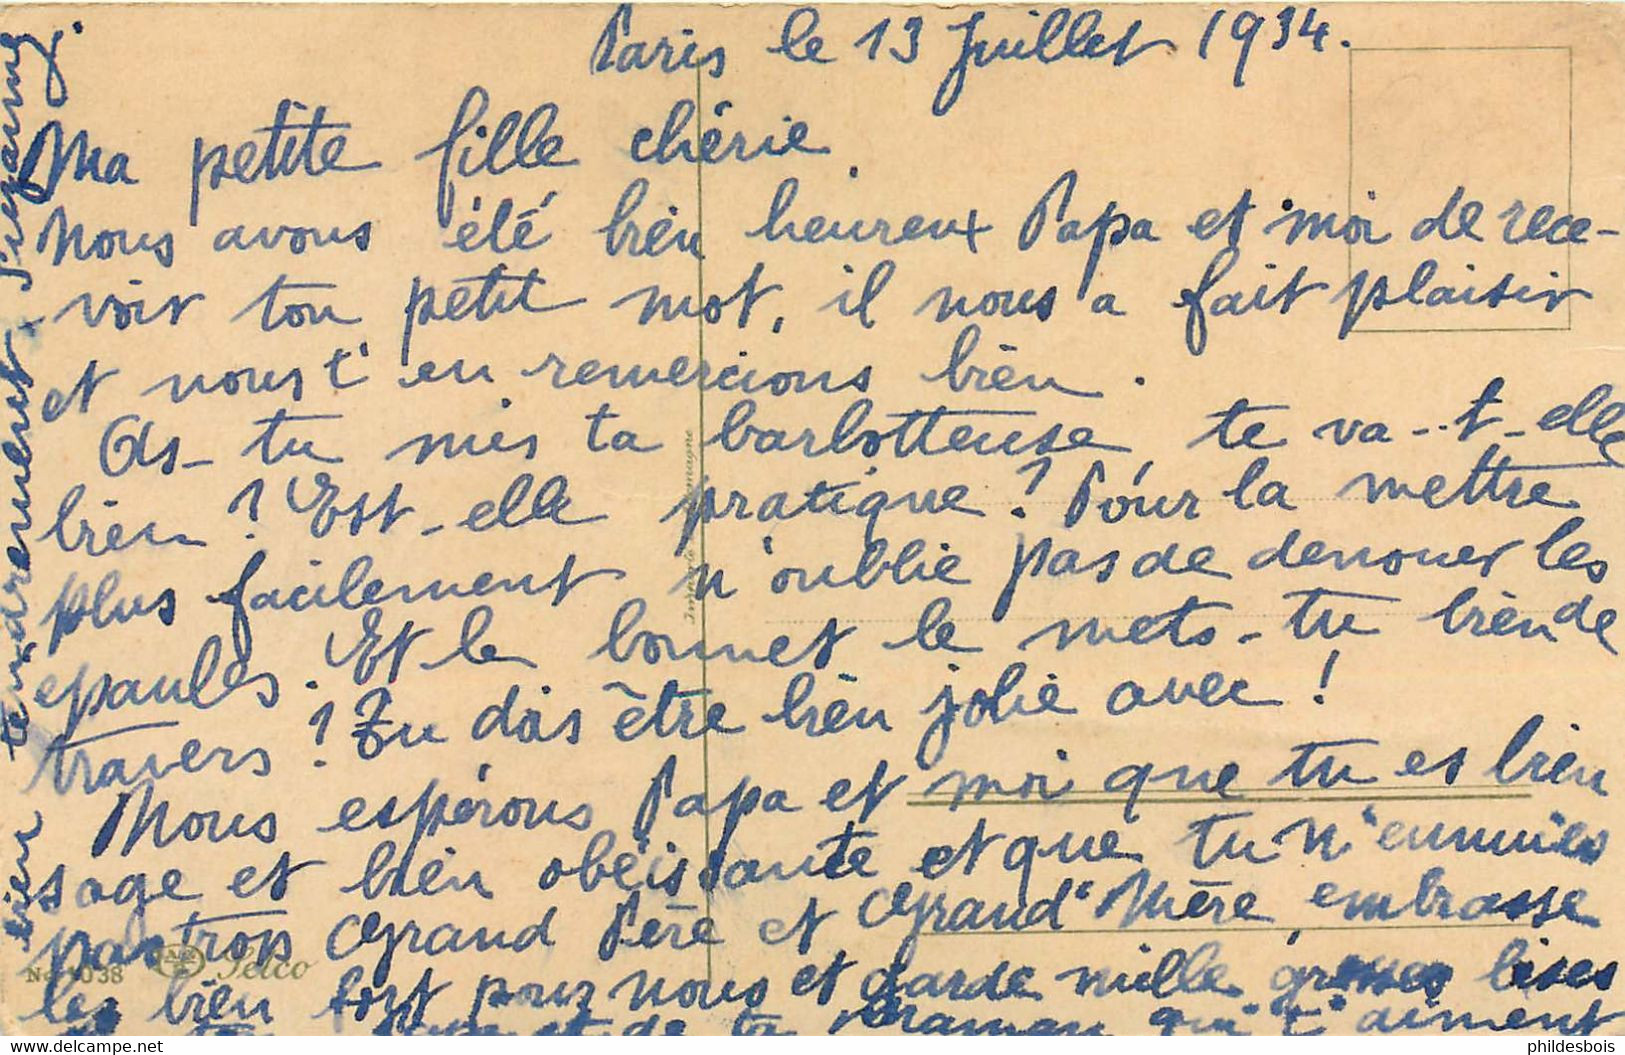 Paris le 13 Juillet 1934.
Ma petite fille chérie
Nous avons été bien heureux Papa et moi de rece-
-voir ton petit mot, il nous a fait plaisir
et nous t'en remercions bien.
As-tu mis ta barbotteuse te va-t-elle
bien ? Est-elle pratique ? Pour la mettre
plus facilement n'oublie pas de denouer les
epaules. Et le bonnet le mets-tu bien de
travers ? Tu dois être bien jolie avec !
Nous espérons Papa et moi que tu es bien
sage et bien obéissante et que tu n'ennuies
pas trop Grand Père et Grand'Mère, embrasse
les bien fort pour nous et garde mille grosses bises
et de ta Maman qui t'aiment
bien tendrement.
No 1038
delcampe.net
phildesbois